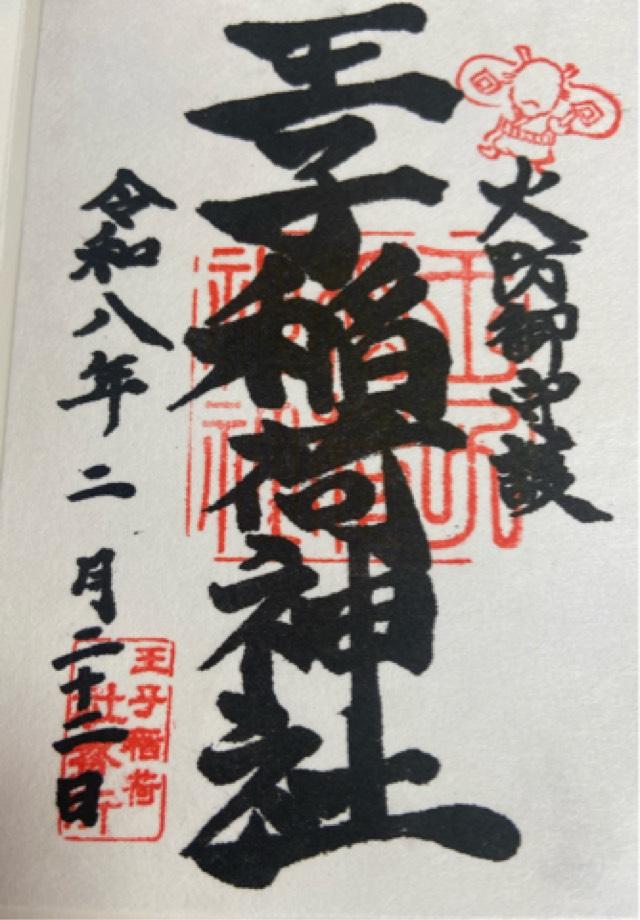 火防御守護
王子稲荷神社
令和八年二月二十二日
王子稲荷
社務所